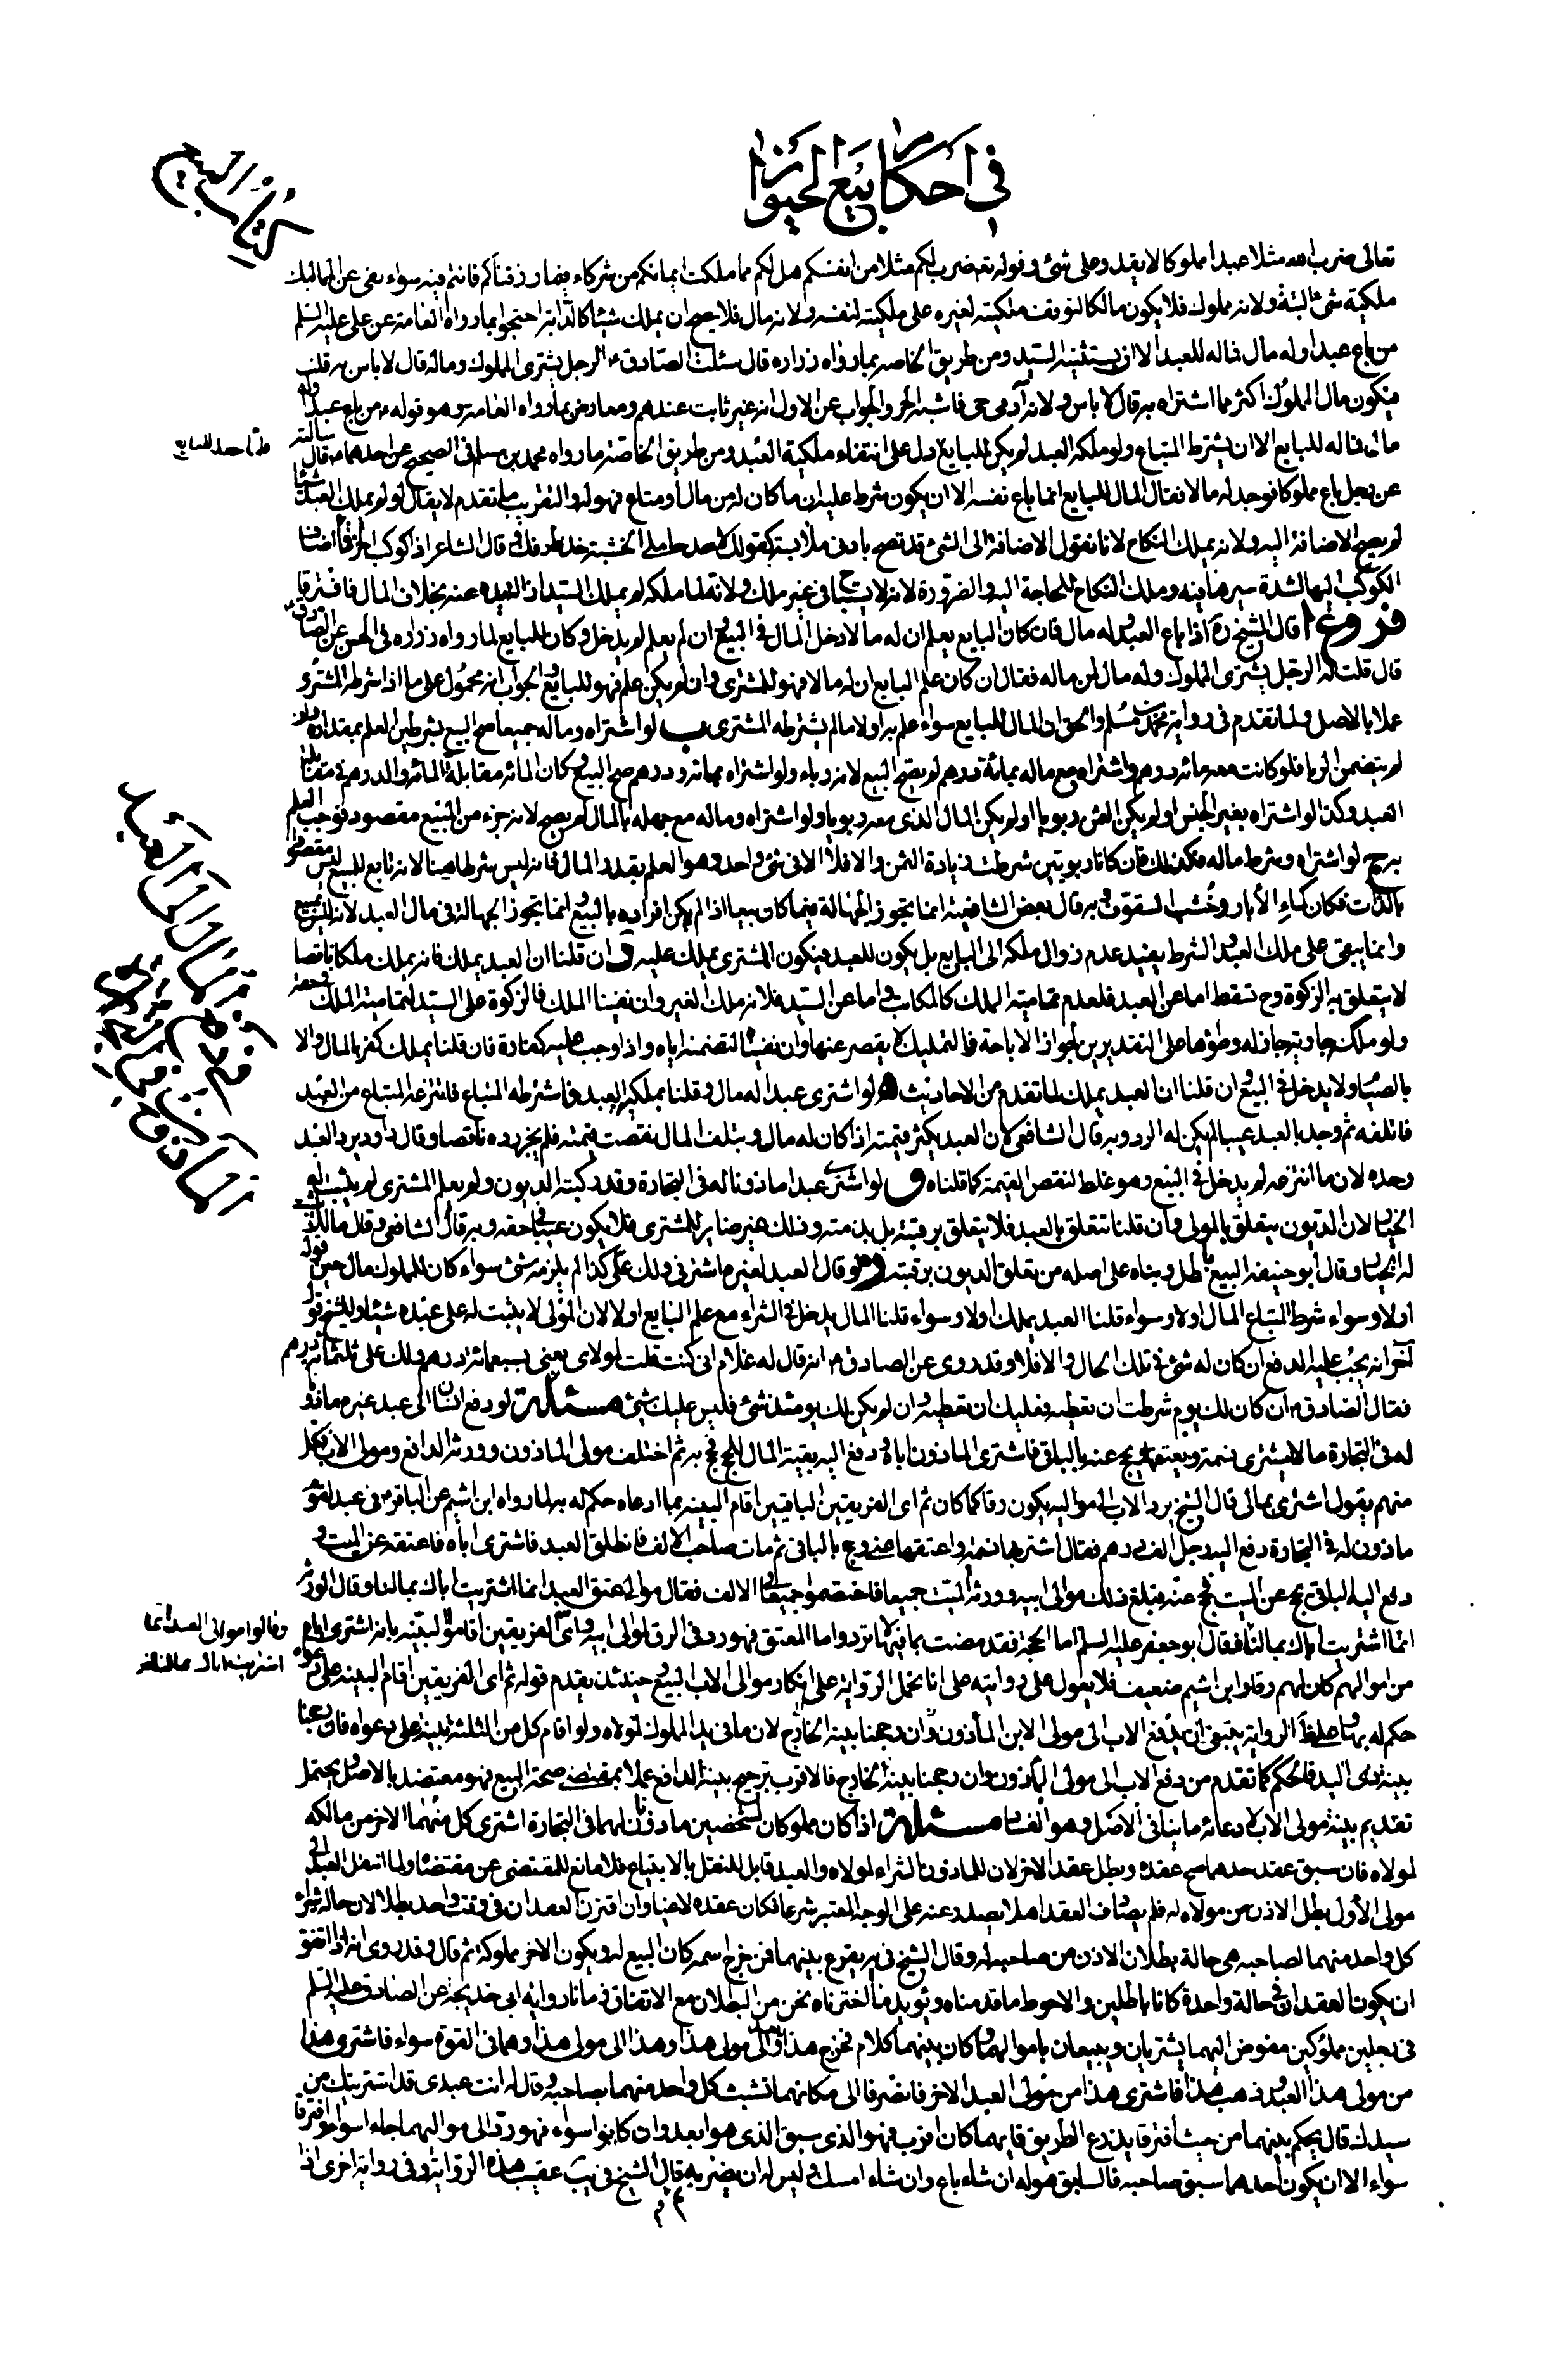 كتاب البيع
في أحكام بيع الحيوان
تعالى ضرب الله مثلا عبدا مملوكا لا يقدر على شئ وقوله تعـ ضرب لكم مثلا من انفسكم هل لكم مما ملكت ايمانكم من شركاء فيما رزقناكم فانتم فيه سواء نفى عن المماليك
ملكية شئ البتة ولانه مملوك فلا يكون مالكا لتوقف ملكيته لغيره على ملكيته لنفسه ولانه مال فلا يصح ان يملك شيئا كالدابة احتجوا بما رواه العامة عن علي عليه السلم
من باع عبدا وله مال فماله للعبد الا ان يستثنيه السيد ومن طريق الخاصه بما رواه زراره قال سئلت الصادق عن الرجل يشترى المملوك وماله قال لا باس به قلت
فيكون مال المملوك اكثر مما اشتراه به قال لا باس ولانه آدمى حى فاشبه الحر والجواب عن الاول انه غير ثابت عندهم ومعارض بما رواه العامة وهو قوله من باع عبدا وله
مال فماله للبايع الا ان يشترط المبتاع ولو ملكه العبد لم يكن للبايع دل على انتفاء ملكية العبد ومن طريق الخاصة ما رواه محمد بن مسلم في الصحيح عن احدهما قال سالته
عن رجل باع مملوكا فوجد له مالا فقال المال للبايع انما باع نفسه الا ان يكون شرط عليه ان ما كان له من مال او متاع فهو له والتقريب ما تقدم لا يقال لو لم يملك العبد شيئا
لم يصح الاضافة اليه ولانه يملك النكاح لانا نقول الاضافة الى الشئ قد تصح بادنى ملابسة كقولك لاحد حاملي الخشبة خذ طرفك وقال الشاعر اذا كوكب الخرقاء اضاف
الكوكب اليها لشدة سيرها فيه وملك النكاح للحاجة اليه والضرورة لانه لا يستباح في غير ملك ولانه لما ملكه لم يملك السيد ازالة يده عنه بخلاف المال فافترقا
فروع ا قال الشيخ ره اذا باع العبد وله مال فان كان البايع يعلم ان له مالا دخل المال في البيع وان لم يعلم لم يدخل وكان للبايع لما رواه زراره في الحسن عن الصادق
قال قلت له الرجل يشترى المملوك وله مال لمن ماله فقال ان كان علم البايع ان له مالا فهو للمشترى وان لم يكن علم فهو للبايع والجواب انه محمول على ما اذا شرطه المشترى
عملا بالاصل ولما تقدم فى رواية محمد بن مسلم والحق ان المال للبايع سواء علم به اولا ما لم يشترطه المشترى ب لو اشتراه وماله جميعا صح البيع بشرطين العلم بمقداره وان
لم يتضمن الربا فلو كانت معه مائة درهم واشتراه مع ماله بمائة درهم لم يصح البيع لانه رباء ولو اشتراه بمائة ودرهم صح البيع وكان المائة مقابلة للمائة والدرهم في مقابلة
العبد وكذا لو اشتراه بغير الجنس او لم يكن الثمن ربويا او لم يكن المال الذى معه ربويا ولو اشتراه وماله مع جهله بالمال لم يصح لانه جزء من المبيع مقصود فوجب العلم
به ج لو اشتراه وشرط ماله فكذلك فان كانا ربويتين شرطت زيادة الثمن والا فلا الا فى شئ واحد وهو العلم بقدر المال فانه ليس شرطا هنا لانه تابع للمبيع ليس مقصودا
بالذات فكان كماء الآبار وخشب السقوف وبه قال بعض الشافعية انما تجوز الجهالة
وانما يبقى على ملك العبد والشرط يفيد عدم زوال ملكه الى البايع بل يكون للعبد فيكون المشترى يملك عليه د ان قلنا ان العبد يملك فانه يملك ملكا ناقصا
لا يتعلق به الزكوة وح تسقط اما عن العبد فلعدم تمامية الملك كالمكاتب واما عن السيد فلانه ملك الغير وان نفينا الملك فالزكوة على السيد لتمامية الملك
ولو ملك جاوية جاز له وطؤها على التقديرين لجواز الاباحة فالتمليك لا يقصر عنها وان نفيناه لتضمنه اياه واذا وجب عليه كفارة فان قلنا يملك كفر بالمال والا
بالصيام ولا يدخل في البيع ان قلنا ان العبد يملك لما تقدم من الاحاديث ه لو اشترى عبدا له مال وقلنا بملكية العبد فاشترطه المبتاع فانتزعه المبتاع من العبد
فاتلفه ثم وجد بالعبد عيبا لم يكن له الرد وبه قال الشافعى لان العبد يكثر قيمته اذا كان له مال ويتلف المال نقصت قيمته فلم يجز رده ناقصا وقال داود يرد العبد
وحده لان ما انتزعه لم يدخل في البيع وهو غلط لنقص القيمة كما قلناه و لو اشترى عبدا ماذونا له فى التجارة وقد ركبته الديون ولم يعلم المشترى لم يثبت له
الخيار لان الديون يتعلق بالمولى وان قلنا تتعلق بالعبد فلا يتعلق برقبته بل بذمته وذلك غير ضاير للمشترى فلا يكون عيبا في حقه وبه قال الشافعى وقال مالك
له الخيار وقال ابو حنيفه البيع باطل وبناه على اصله من تعلق الديون برقبته ز لو قال العبد لغيره اشترنى ولك على كذا لم يلزمه شئ سواء كان للمملوك مال حين قوله
اولا وسواء شرط المبتاع المال اولا وسواء قلنا العبد يملك اولا وسواء قلنا المال يدخل في الشراء مع علم البايع اولا لان المولى لا يثبت له على عبده شيئا وللشيخ قول
آخر انه يجب عليه الدفع ان كان له شئ في تلك الحال والا فلا وقد روى عن الصادق انه قال له غلام انى كنت قلت لمولاى بعنى بسبعمائة درهم ولك على ثلثمائة درهم
فقال الصادق ان كان لك يوم شرطت ان تعطيه فعليك ان تعطيه وان لم يكن لك يومئذ شئ فليس عليك شئ مسئلة لو دفع انسان الى عبد غيره ماذون
له فى التجارة مالا يشترى نسمة ويعتقها ويحج عنه بالباقى فاشترى الماذون اباه ودفع اليه بقية المال للحج فحج به ثم اختلف مولى الماذون وورثة الدافع ومولى الاب فكل
منهم يقول اشترى بمالى قال الشيخ يرد الاب الى مواليه يكون رقا كما كان ثم اى الفريقين الباقيين اقام البينه بما ادعاه حكم له به لما رواه ابن اشيم عن الباقر فى عبد لقوم
ماذون له فى التجارة دفع اليه رجل الف درهم فقال اشتر بها نسمة واعتقها عنى وحج بالباقى ثم مات صاحب الالف فانطلق العبد فاشترى اباه فاعتقه عن الميت و
دفع اليه الباقي يحج عن الميت فحج عنه فبلغ ذلك موالى ابيه وورثة الميت جميعا فاختصموا جميعا في الالف فقال موالى معتق العبد انما اشتريت اباك بمالنا وقال الورثة
انما اشتريت اباك بمالنا فقال ابو جعفر عليه السلم اما الحجة فقد مضت بما فيها لا ترد واما المعتق فهو رد فى الرق لموالى ابيه واى الفريقين اقاموا البينه بانه اشترى اباه
من اموالهم كان لهم رقا وابن اشيم ضعيف فلا يعول على روايته على انا نحمل الرواية على انكار موالى الاب البيع وحينئذ يقدم قوله ثم اى الفريقين اقام البينه على دعواه
حكم له بها
بينة ذى اليد فالحكم كما تقدم من دفع الاب الى مولى الماذون وان رجحنا بينة الخارج فالاقرب ترجيح بينة الدافع عملا بمقتضى صحة البيع فهو معتضد بالاصل ويحتمل
تقديم بينة مولى الاب لادعائه ما ينافى الاصل وهو الفساد مسئلة اذا كان مملوكان لشخصين ماذونا لهما فى التجارة اشترى كل منهما الاخر من مالكه
لمولاه فان سبق عقد احدهما صح عقده وبطل عقد الاخر لان للماذون الشراء لمولاه والعبد قابل للنقل بالابتياع فلا مانع للمقتضى عن مقتضاه ولما انتقل العبد الى
مولى الأول بطل الاذن من مولاه له فلم يصادف العقد اهلا يصدر عنه على الوجه المعتبر شرعا فكان عقده لاغيا وان اقترن العقدان فى وقت واحد بطلا لان حالة شراء
كل واحد منهما لصاحبه هى حالة بطلان الاذن من صاحبه له وقال الشيخ فى يه يقرع بينهما فمن خرج اسمه كان البيع له ويكون الاخر مملوكه ثم قال وقد روى انه اذا اتفق
ان يكون العقدان فى حالة واحدة كانا باطلين والاحوط ما قدمناه ويؤيد ما اخترناه نحن من البطلان مع الاتفاق في مانا رواية ابى خديجة عن الصادق عليه السلم
فى رجلين مملوكين مفوض اليهما يشتريان ويبيعان باموالهما وكان بينهما كلام فخرج هذا يعدو الى مولى هذا وهذا الى مولى هذا وهما فى القوة سواء فاشترى هذا
من مولى هذا العبد وذهب هذا فاشترى هذا من مولى العبد الاخر فانصرفا الى مكانهما تشبث كل واحد منهما بصاحبه وقال له انت عبدى قد اشتريتك من
سيدك قال يحكم بينهما من حيث افترقا يذرع الطريق فايهما كان اقرب فهو الذى سبق الذى هو ابعد وان كانوا سواء فهو رد الى مواليهما جاءا سواء وافترقا
سواء الا ان يكون احدهما سبق صاحبه فالسابق هو له ان شاء باع وان شاء امسك وليس له ان يضر به قال الشيخ فى يب عقيب هذه الرواية وفى رواية اخرى اذا
وقالوا موالى العبد انما
اشتريت اباك بمالنا